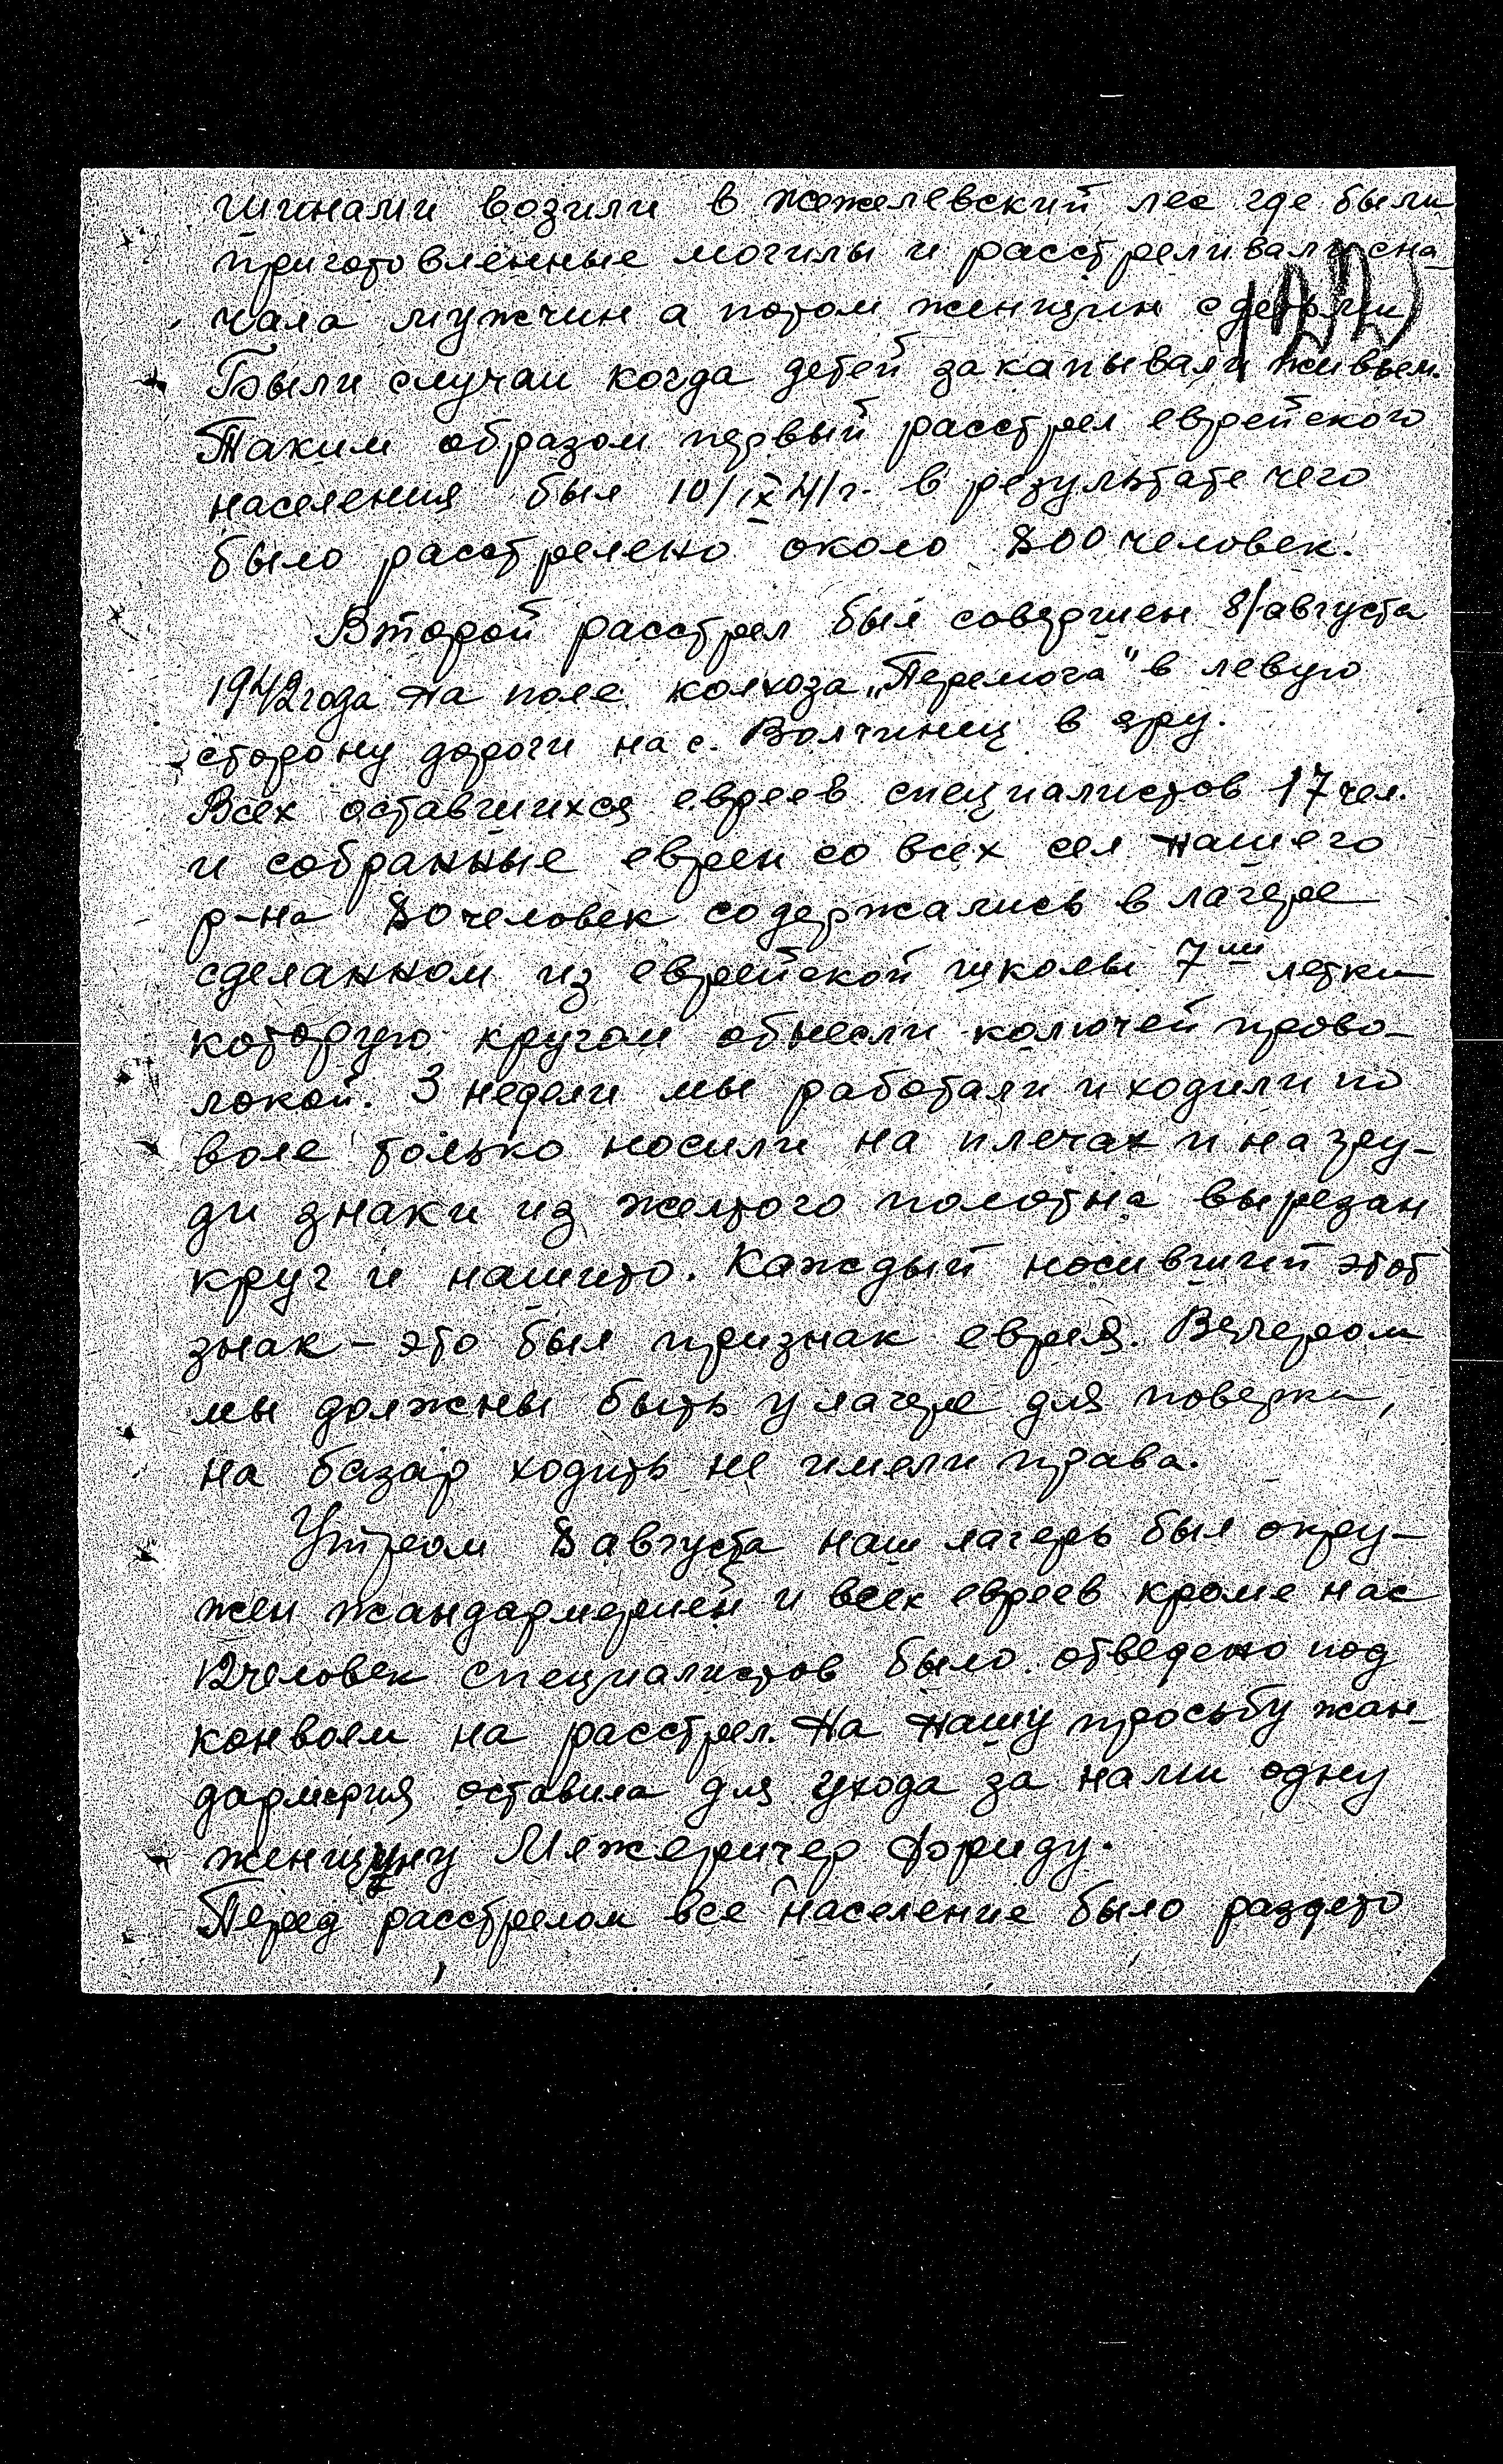 шинами возили в жежелевский лес где были
приготовленные могилы и расстреливали сна-
чала мужчин а потом женщин с детьми
122
Были случаи когда детей закапывали живьем.
Таким образом первый расстрел еврейского
населения был 10/IX 41г. в результате чего
было расстрелено около 800 человек.
Второй расстрел был совершен 8/августа
1942 года на поле колхоза „Перемога" в левую
сторону дороги на с. Волчинец в яру.
Всех оставшихся евреев специалистов 17 чел.
и собранные евреи со всех сел нашего
р-на 80 человек содержались в лагере
сделанном из еврейской школы 7ми летки
которую кругом обнесли колючей прово-
локой. 3 недели мы работали и ходили по
воле только носили на плечах и на гру-
ди знаки из желтого полотна вырезан
круг и нашито. Каждый носивший этот
знак – это был признак еврея. Вечером
мы должны быть у лагере для поверки,
на базар ходить не имели права.
Утром 8 августа наш лагерь был окру-
жен жандармерией и всех евреев кроме нас
12 человек специалистов было отведено под
конвоем на расстрел. На нашу просьбу жан-
дармерия оставила для ухода за нами одну
женщину Межеричер Фриду.
Перед расстрелом все население было раздето